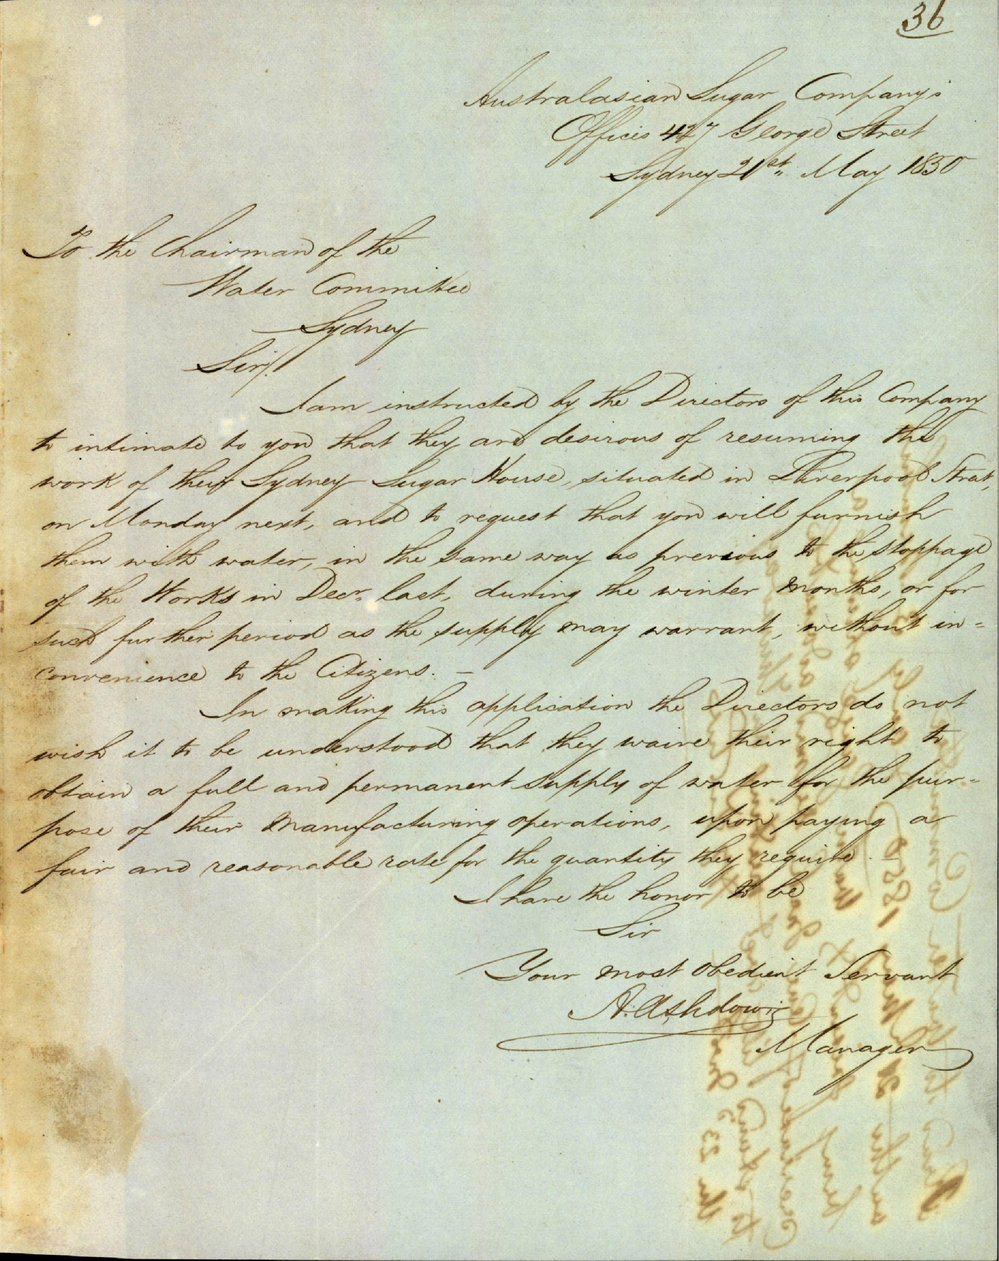 36
Australasian Sugar Company's
Offices 427 George Street
Sydney 21st May 1850
To the Chairman of the
Water Committee
Sydney
Sir,
I am instructed by the Directors of this Company
to intimate to you that they are desirous of resuming the
work of their Sydney Sugar House, situated in Liverpool Street,
on Monday next, and to request that you will furnish
them with water, in the same way as previous to the stoppage
of the Works in Decr. last, during the winter months, or for
such further period as the supply may warrant, without in=
convenience to the Citizens. —
In making this application the Directors do not
wish it to be understood that they waive their right to
obtain a full and permanent supply of water for the pur=
pose of their manufacturing operations, upon paying a
fair and reasonable rate for the quantity they require.
I have the honor to be
Sir
Your most obedient Servant
A. Ashdown
Manager